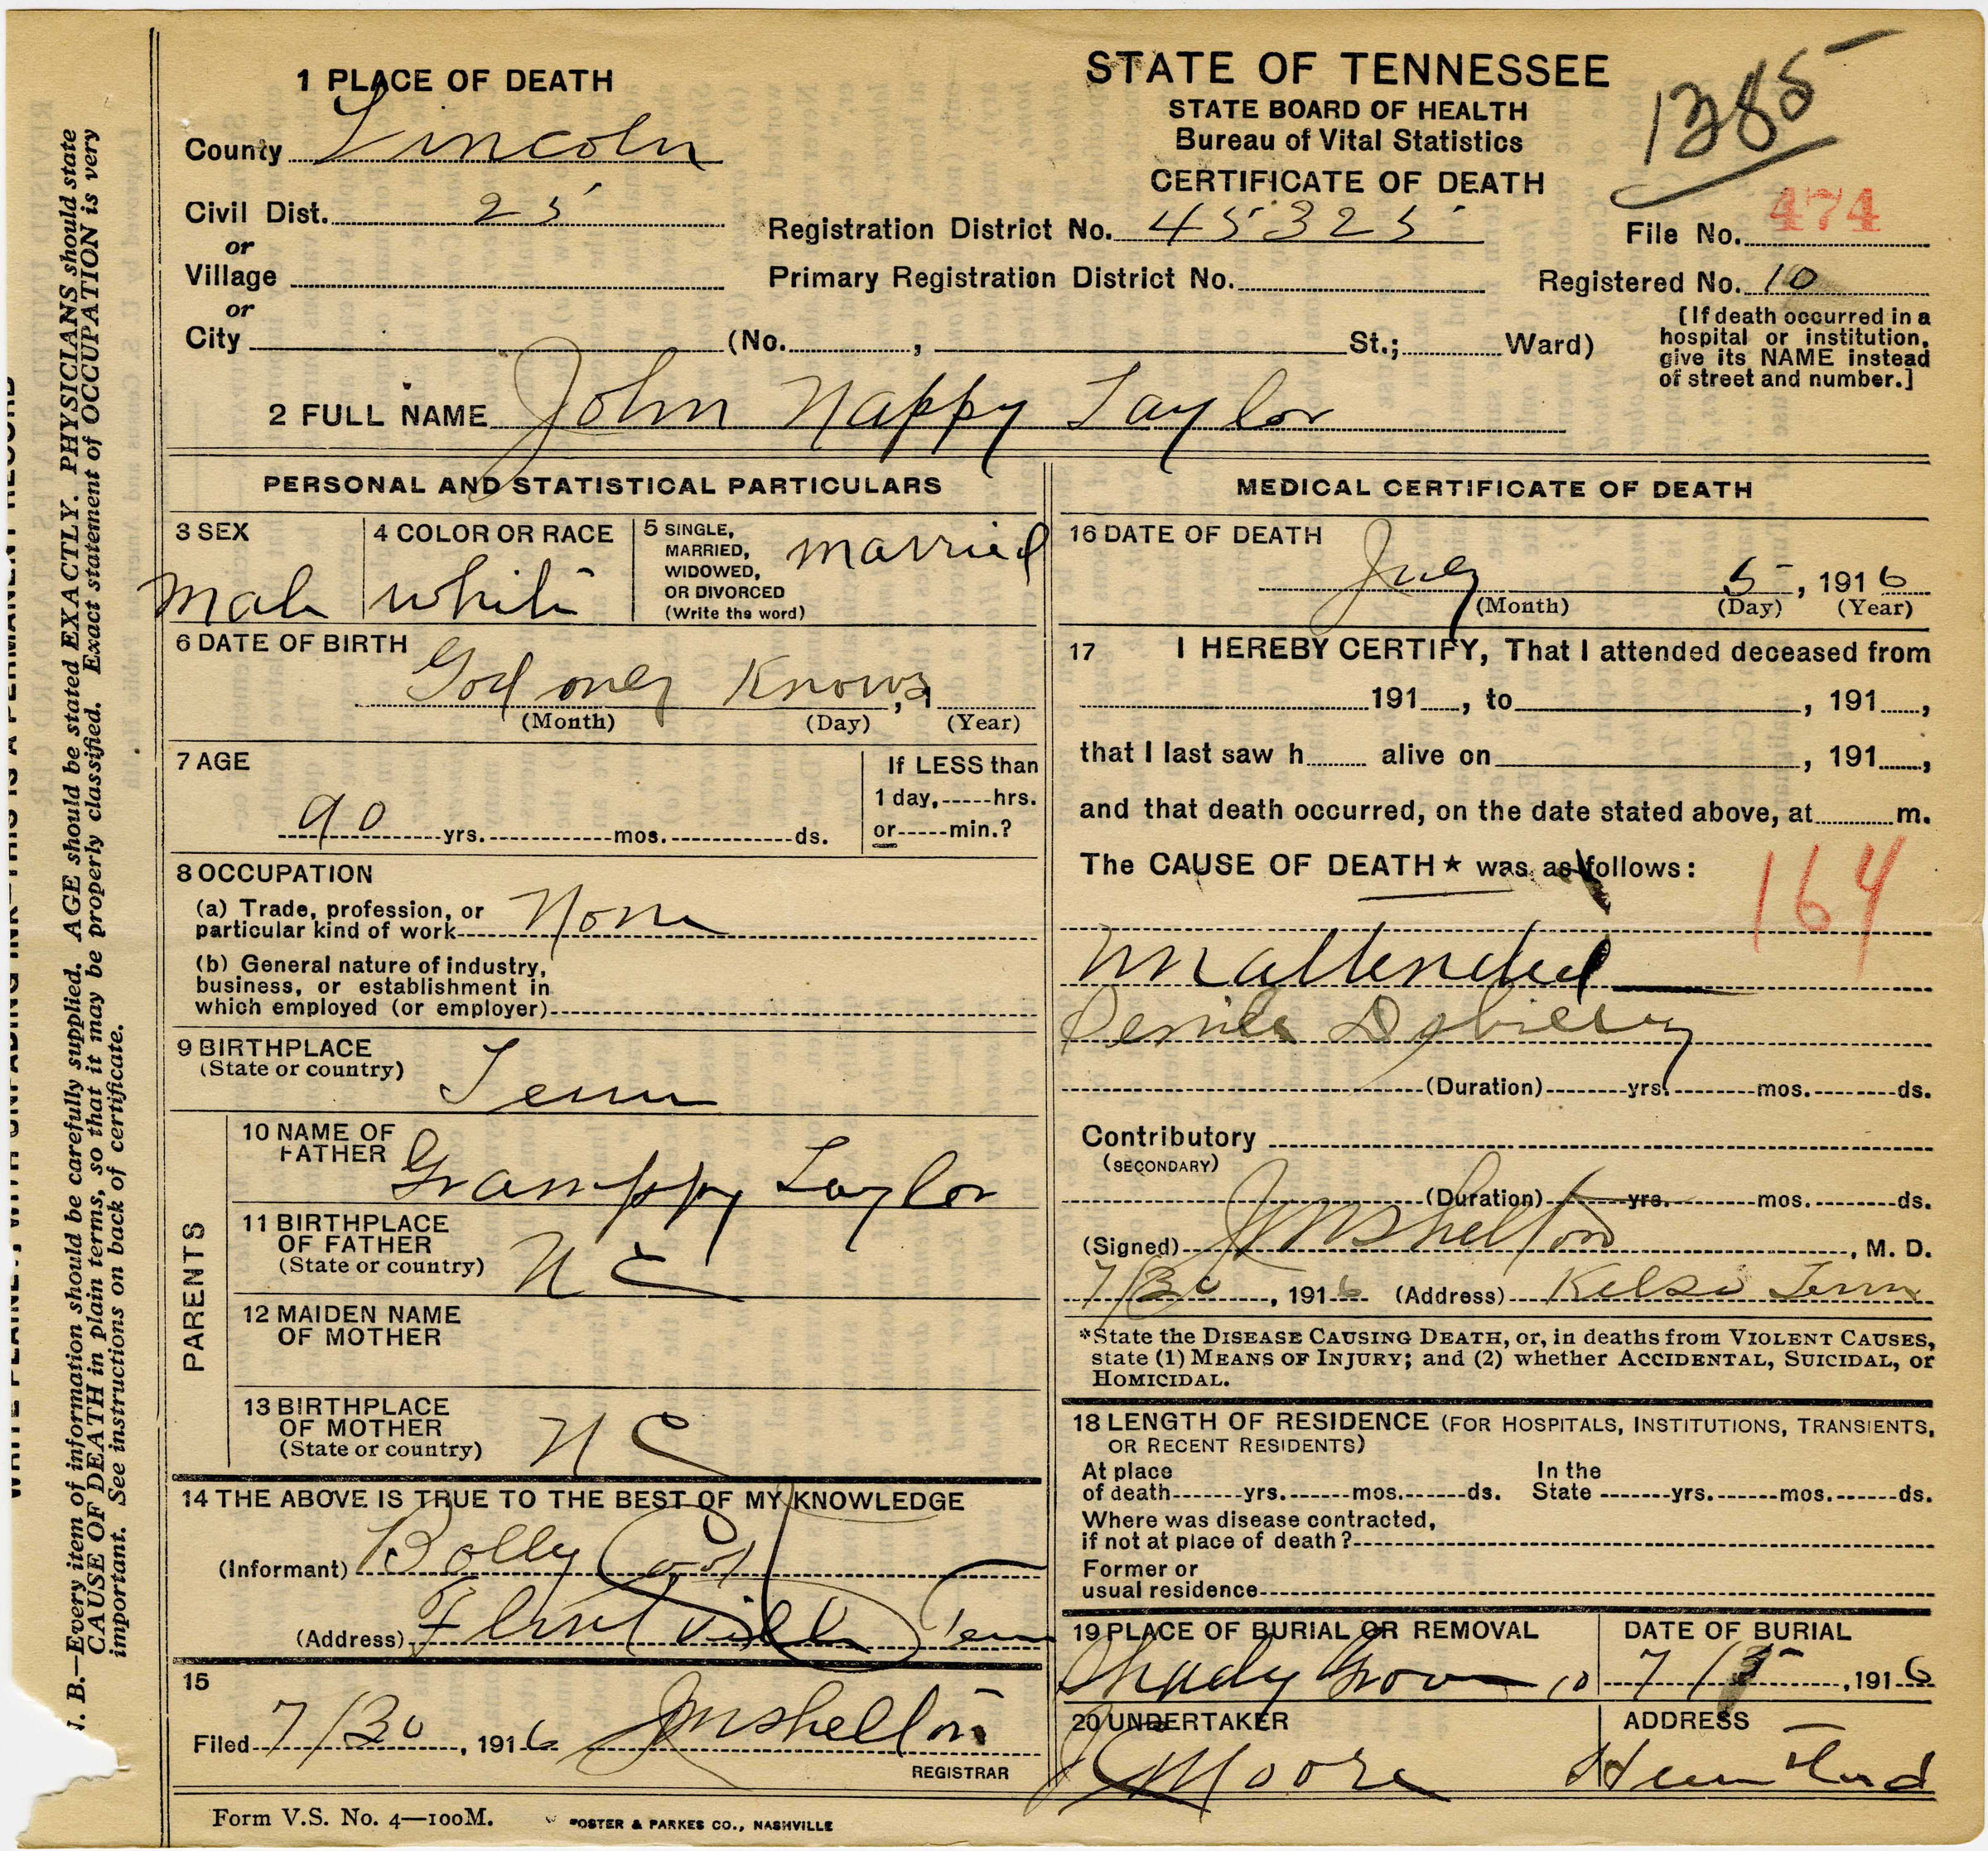 1 PLACE OF DEATH
County Lincoln
Civil Dist. 25
or
Village
or
City (No. , St.; Ward)
STATE OF TENNESSEE
STATE BOARD OF HEALTH
Bureau of Vital Statistics
CERTIFICATE OF DEATH
1385
Registration District No. 45325
File No. 474
Primary Registration District No.
Registered No. 10
[If death occurred in a
hospital or institution,
give its NAME instead
of street and number.]
2 FULL NAME John Nappy Taylor
PERSONAL AND STATISTICAL PARTICULARS
3 SEX
Male
4 COLOR OR RACE
White
5 SINGLE,
MARRIED,
WIDOWED,
OR DIVORCED
(Write the word)
married
6 DATE OF BIRTH
God only Knows, 1
(Month) (Day) (Year)
7 AGE
90 yrs. mos. ds.
If LESS than
1 day, hrs.
or min.?
8 OCCUPATION
(a) Trade, profession, or
particular kind of work None
(b) General nature of industry,
business, or establishment in
which employed (or employer)
9 BIRTHPLACE
(State or country)
Tenn
PARENTS
10 NAME OF
FATHER
Gramppy Taylor
11 BIRTHPLACE
OF FATHER
(State or country)
N C
12 MAIDEN NAME
OF MOTHER
13 BIRTHPLACE
OF MOTHER
(State or country)
N C
14 THE ABOVE IS TRUE TO THE BEST OF MY KNOWLEDGE
(Informant) Bolly
(Address) Flintville Tenn
15
Filed 7/30, 1916 JM Shelton
REGISTRAR
MEDICAL CERTIFICATE OF DEATH
16 DATE OF DEATH
July 5, 1916
(Month) (Day) (Year)
17 I HEREBY CERTIFY, That I attended deceased from
191 , to , 191 ,
that I last saw h alive on , 191 ,
and that death occurred, on the date stated above, at m.
The CAUSE OF DEATH* was as follows:
164
Unattended
Senile Debility
(Duration) yrs. mos. ds.
Contributory
(SECONDARY)
(Duration) yrs. mos. ds.
(Signed) JM Shelton, M. D.
7/30, 1916 (Address) Kelso Tenn
*State the DISEASE CAUSING DEATH, or, in deaths from VIOLENT CAUSES,
state (1) MEANS OF INJURY; and (2) whether ACCIDENTAL, SUICIDAL, or
HOMICIDAL.
18 LENGTH OF RESIDENCE (FOR HOSPITALS, INSTITUTIONS, TRANSIENTS,
OR RECENT RESIDENTS)
At place
of death yrs. mos. ds.
In the
State yrs. mos. ds.
Where was disease contracted,
if not at place of death?
Former or
usual residence
19 PLACE OF BURIAL OR REMOVAL
Shady Grove 10
DATE OF BURIAL
7/5, 1916
20 UNDERTAKER
Moore
ADDRESS
Form V.S. No. 4—100M.
FOSTER & PARKES CO., NASHVILLE
N. B.—Every item of information should be carefully supplied. AGE should be stated EXACTLY. PHYSICIANS should state
CAUSE OF DEATH in plain terms, so that it may be properly classified. Exact statement of OCCUPATION is very
important. See instructions on back of certificate.